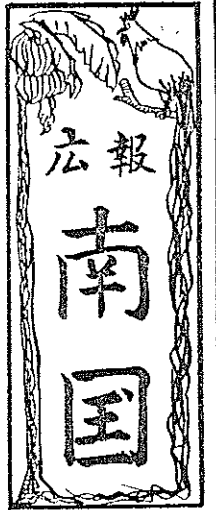 広報
南国